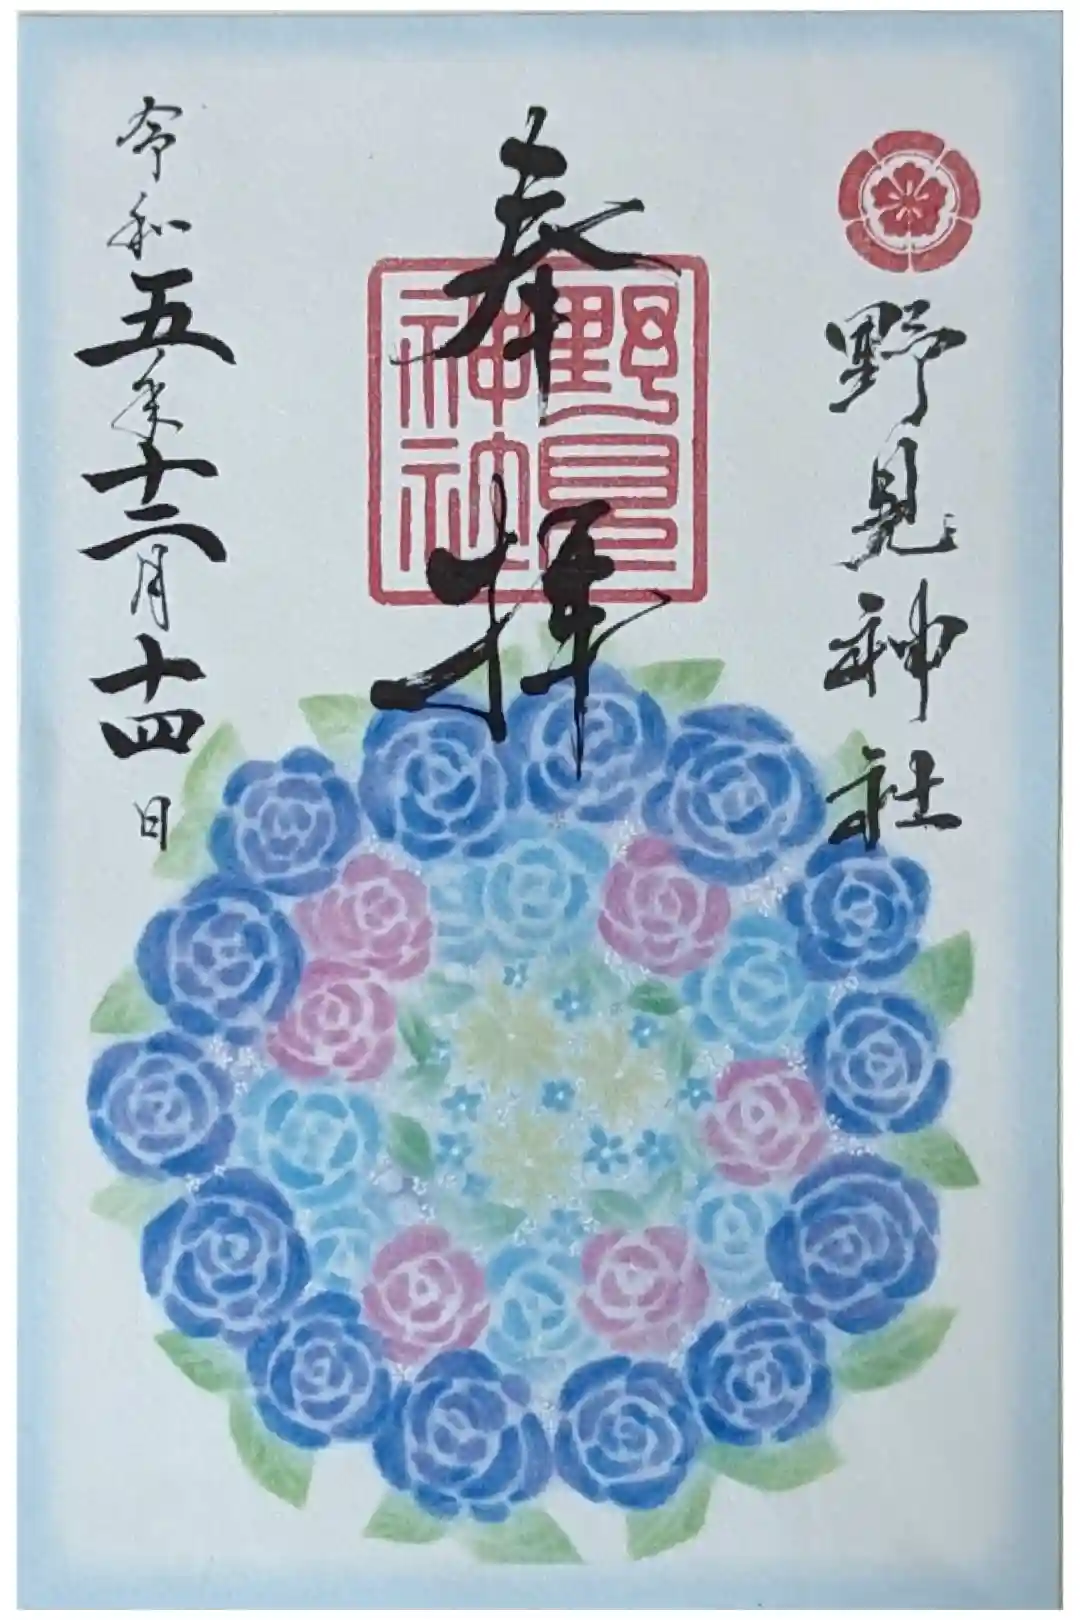 野見神社
奉拝
野見
神社
令和五年十二月十四日